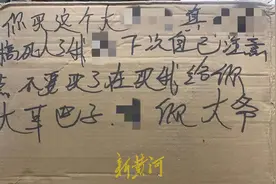 你买这个大 真
搞死人了我 下次自己注意
点 不要买了在买我给你
大草巴子. 你大爷
新黄河